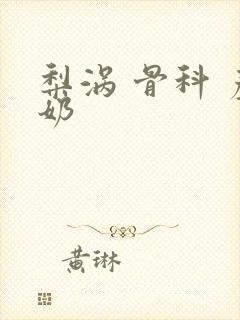 梨涡 骨科
奶
黄琳